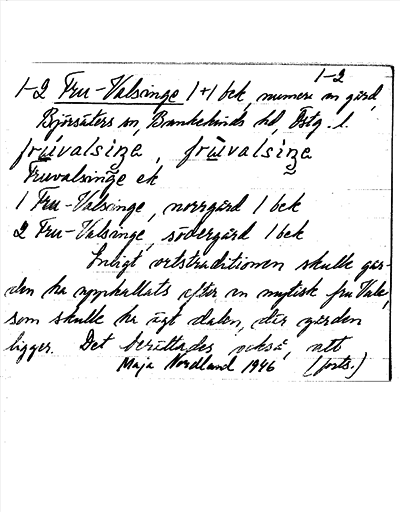 1-2
1-2 Fru-Valsinge 1+1 bek, numera en gård,
Björsäters sn, Bankekinds hd, Östg. l.
fruvalsiŋe, fruvalsiŋe
Fruvalsinge ek
1 Fru-Valsinge, norrgård 1 bek
2 Fru-Valsinge, södergård 1 bek
Enligt ortstraditionen skulle går-
den ha uppkallats efter en mytisk fru Vale,
som skulle ha ägt dalen, där gården
ligger. Det berättades också, att
Maja Nordland 1946 (forts.)